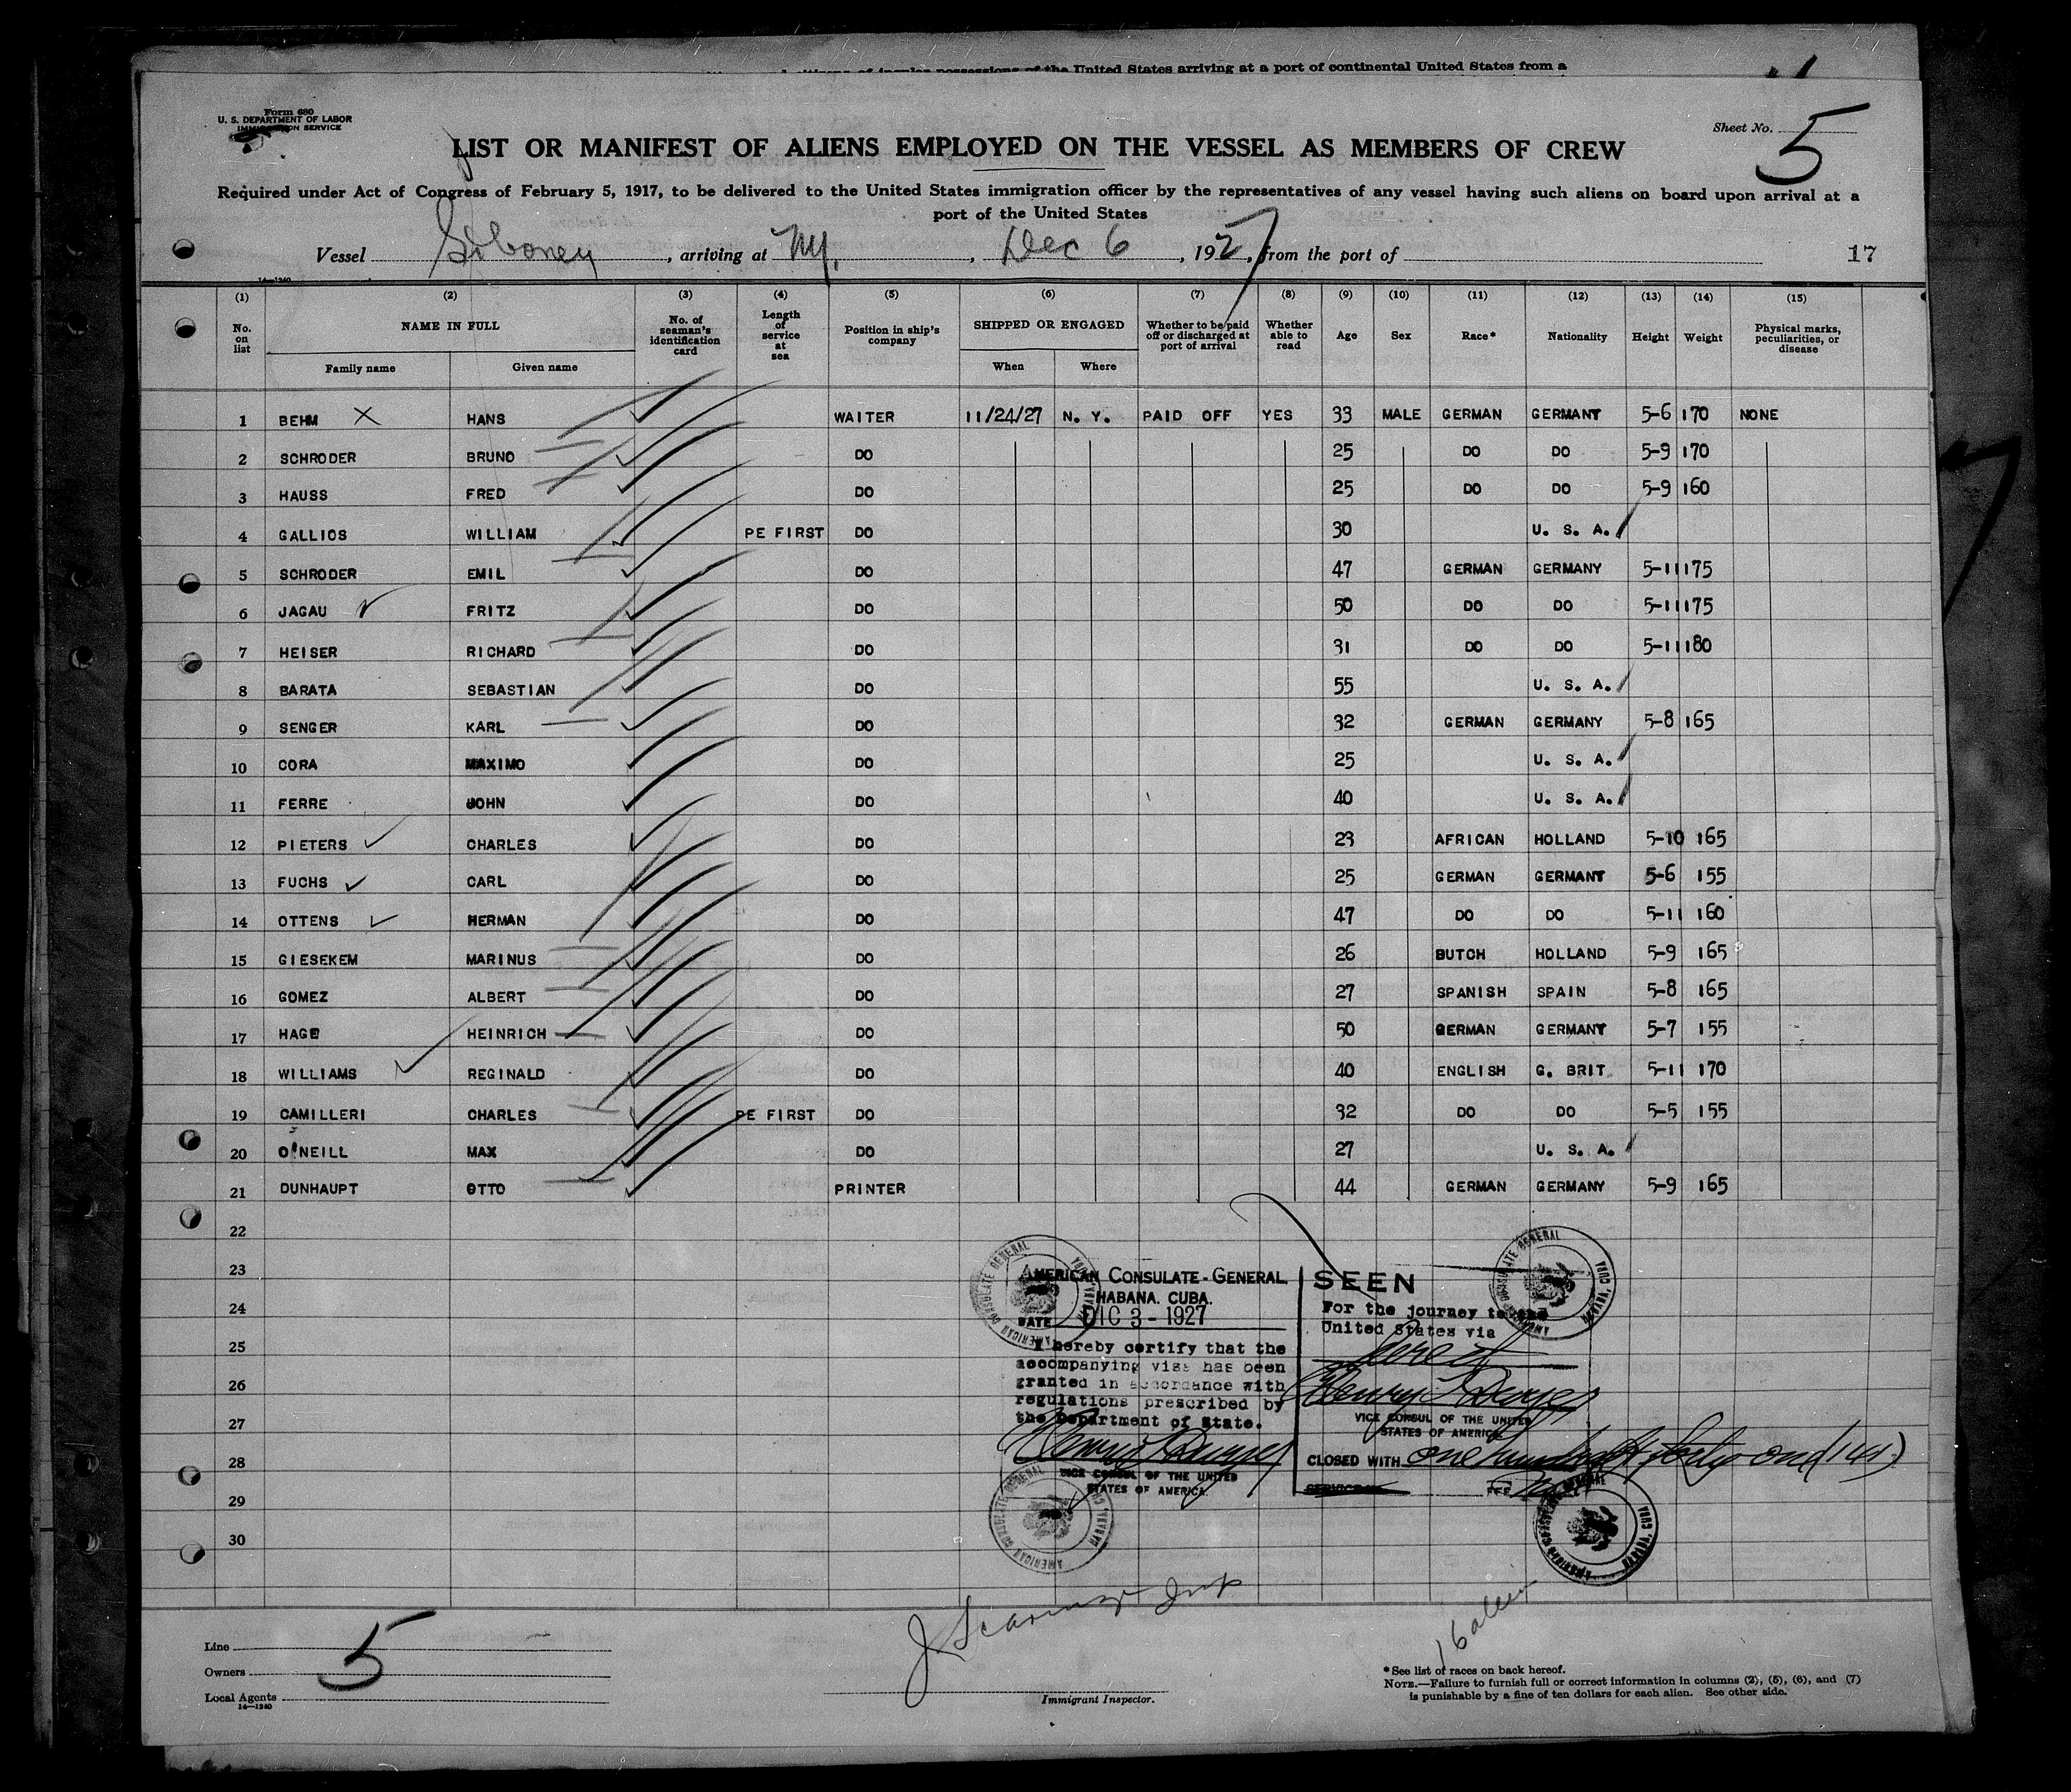 citizens of insular possessions of the United States arriving at a port of continental United States from a
Form 680
U. S. DEPARTMENT OF LABOR
IMMIGRATION SERVICE
Sheet No. 5
LIST OR MANIFEST OF ALIENS EMPLOYED ON THE VESSEL AS MEMBERS OF CREW
Required under Act of Congress of February 5, 1917, to be delivered to the United States immigration officer by the representatives of any vessel having such aliens on board upon arrival at a
port of the United States
Vessel Siboney, arriving at NY., Dec 6, 1927, from the port of 17
14-1240
(1) (2) (3) (4) (5) (6) (7) (8) (9) (10) (11) (12) (13) (14) (15)
No. on list NAME IN FULL No. of seaman's identification card Length of service at sea Position in ship's company SHIPPED OR ENGAGED Whether to be paid off or discharged at port of arrival Whether able to read Age Sex Race* Nationality Height Weight Physical marks, peculiarities, or disease
Family name Given name When Where
1 BEHM HANS WAITER 11/24/27 N. Y. PAID OFF YES 33 MALE GERMAN GERMANY 5-6 170 NONE
2 SCHRODER BRUNO DO 25 DO DO 5-9 170
3 HAUSS FRED DO 25 DO DO 5-9 160
4 GALLIOS WILLIAM PE FIRST DO 30 U. S. A.
5 SCHRODER EMIL DO 47 GERMAN GERMANY 5-11 175
6 JAGAU FRITZ DO 50 DO DO 5-11 175
7 HEISER RICHARD DO 31 DO DO 5-11 180
8 BARATA SEBASTIAN DO 55 U. S. A.
9 SENGER KARL DO 32 GERMAN GERMANY 5-8 165
10 CORA MAXIMO DO 25 U. S. A.
11 FERRE JOHN DO 40 U. S. A.
12 PIETERS CHARLES DO 23 AFRICAN HOLLAND 5-10 165
13 FUCHS CARL DO 25 GERMAN GERMANY 5-6 155
14 OTTENS HERMAN DO 47 DO DO 5-11 160
15 GIESEKEM MARINUS DO 26 DUTCH HOLLAND 5-9 165
16 GOMEZ ALBERT DO 27 SPANISH SPAIN 5-8 165
17 HAGE HEINRICH DO 50 GERMAN GERMANY 5-7 155
18 WILLIAMS REGINALD DO 40 ENGLISH G. BRIT. 5-11 170
19 CAMILLERI CHARLES PE FIRST DO 32 DO DO 5-5 155
20 O'NEILL MAX DO 27 U. S. A.
21 DUNHAUPT OTTO PRINTER 44 GERMAN GERMANY 5-9 165
22
23
24
25
26
27
28
29
30
AMERICAN CONSULATE-GENERAL
HABANA. CUBA.
DATE DIC 3 - 1927
I hereby certify that the
accompanying visa has been
granted in accordance with
regulations prescribed by
the Department of State.
VICE CONSUL OF THE UNITED
STATES OF AMERICA.
SEEN
For the journey to the
United States via
Direct
VICE CONSUL OF THE UNITED
STATES OF AMERICA
CLOSED WITH one hundred forty one (141)
SERVICE
FEE
AMERICAN CONSULATE GENERAL HABANA, CUBA
AMERICAN CONSULATE GENERAL HABANA, CUBA
AMERICAN CONSULATE GENERAL HABANA, CUBA
AMERICAN CONSULATE GENERAL HABANA, CUBA
16 alien
Line
Owners 5
Local Agents
14-1240
Immigrant Inspector.
*See list of races on back hereof.
NOTE.—Failure to furnish full or correct information in columns (2), (5), (6), and (7)
is punishable by a fine of ten dollars for each alien. See other side.